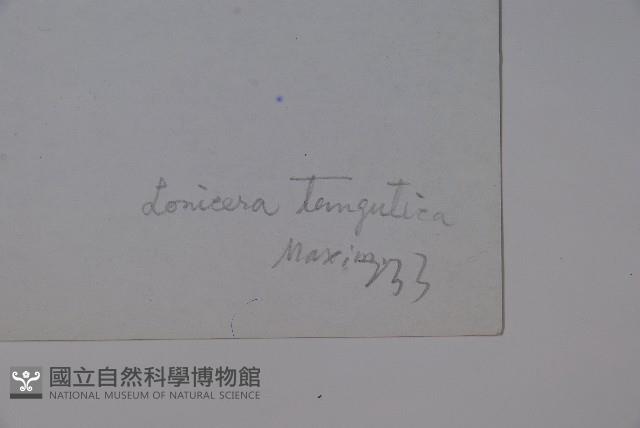 Lonicera tangutica
Maxim.
國立自然科學博物館
NATIONAL MUSEUM OF NATURAL SCIENCE